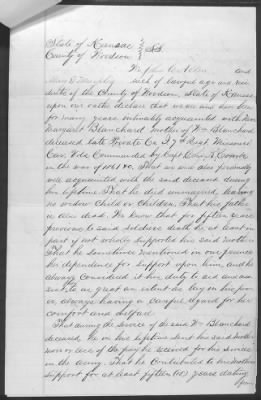 State of Kansas
County of Woodson } SS.
We John C. and
Mary E. each of lawful age and resi
dents of the County of Woodson, State of Kansas
upon our oaths declare that we are and have been
for many years intimately acquainted with Mrs
Margaret Blanchard mother of Wm Blanchard
deceased late Private Co. 7th Regt Missouri
Cav. Vols. Commanded by Capt
in the war of That we are also personally
well acquainted with the said deceased during
his lifetime. That he died unmarried, leaving
no widow Child or Children. That his father
is also dead. We know that for fifteen years
previous to said soldiers death he at least in
part if not wholly supported his said mother
That he sometimes mentioned in our presence
the dependence for support upon him, and he
always considered it his duty to aid and as
sist, to as great an extent as lay in his pow
er always having a careful regard for her
comfort and welfare.
That during the service of the said Wm Blanchard
deceased, he in his lifetime sent his said moth
er more or less of the pay he received for his services
in the army. That he Contributed to his mothers
support for at least fifteen (15) years dating